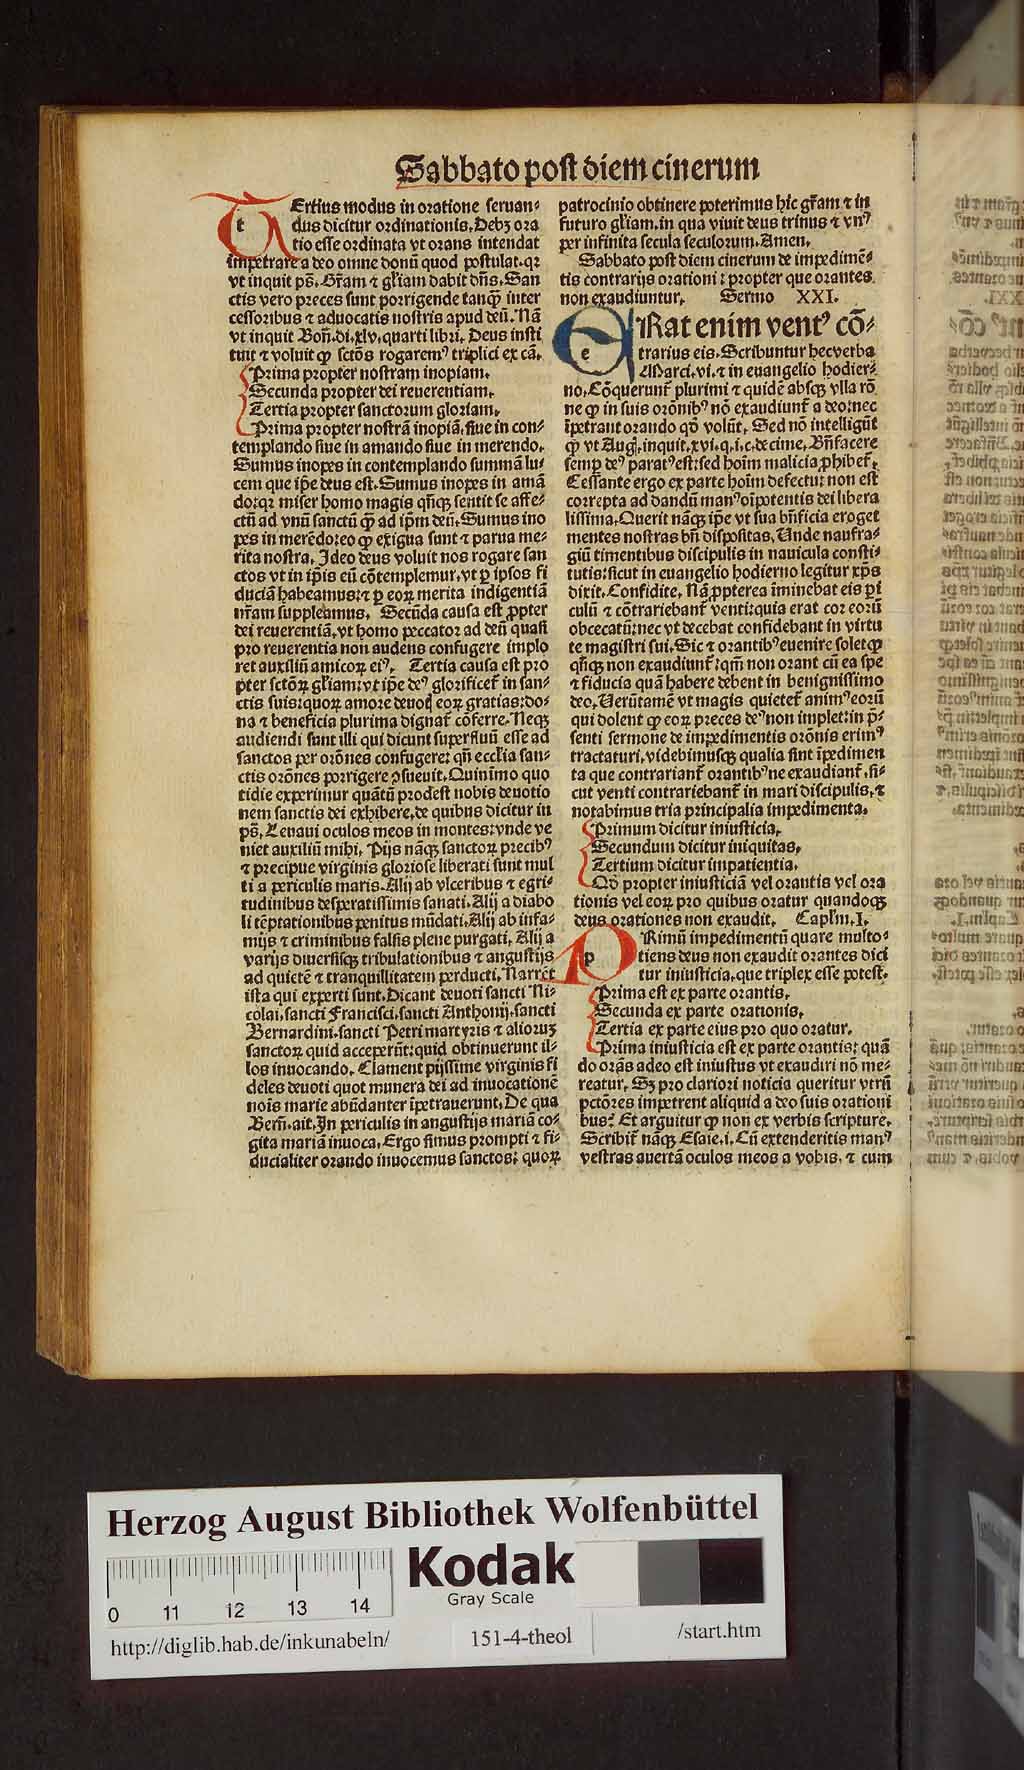 Sabbato post diem cinerum
tErtius modus in oratione seruan-
dus dicitur ordinationis. Debꝫ ora
tio esse ordinata vt orans intendat
impetrare a deo omne donū quod postulat. qꝛ
vt inquit ps̄. Gr̄am ⁊ gl̄iam dabit dn̄s. San
ctis vero preces sunt porrigende tanqȝ inter
cessoribus ⁊ aduocatis nostris apud deū. Nā
vt inquit Bon̄. di. xlv. quarti libri. Deus insti
tuit ⁊ voluit ꝙ sctōs rogaremꝰ triplici ex cā.
Prima propter nostram inopiam.
Secunda propter dei reuerentiam.
Tertia propter sanctorum gloriam.
Prima propter nostrā inopiā. siue in con-
templando siue in amando siue in merendo.
Sumus inopes in contemplando summā lu-
cem que ip̄e deus est. Sumus inopes in amā
do: qꝛ miser homo magis qn̄qȝ sentit se affe-
ctū ad vnū sanctū qȝ ad ip̄m deū. Sumus ino
pes in merēdo: eo ꝙ exigua sunt ⁊ parua me-
rita nostra. Ideo deus voluit nos rogare san
ctos vt in ip̄is eū cōtemplemur. vt ꝑ ipsos fi
duciā habeamus: ⁊ ꝑ eoꝝ merita indigentiā
nr̄am suppleamus. Secūda causa est ꝓpter
dei reuerentiā. vt homo peccator ad deū quasi
pro reuerentia non audens confugere implo
ret auxiliū amicoꝝ eiꝰ. Tertia causa est pro
pter sctōꝝ gl̄iam: vt ip̄e deꝰ glorificet̄ in san-
ctis suis: quoꝝ amore deuotꝭ eoꝝ gratias: do-
na ⁊ beneficia plurima dignat̄ cōferre. Neqȝ
audiendi sunt illi qui dicunt superfluū esse ad
sanctos per orōnes confugere: qn̄ eccl̄ia san-
ctis orōnes porrigere ꝯsueuit. Quinimo quo
tidie experimur quātū prodest nobis deuotio
nem sanctis dei exhibere. de quibus dicitur in
ps̄. Leuaui oculos meos in montes: vnde ve
niet auxiliū mihi. Pijs nāqȝ sanctoꝝ precibꝰ
⁊ precipue virginis gloriose liberati sunt mul
ti a periculis maris. Alij ab vlceribus ⁊ egri-
tudinibus desperatissimis sanati. Alij a diabo
li tēptationibus penitus mūdati. Alij ab infa-
mijs ⁊ criminibus falsis plene purgati. Alij a
varijs diuersisqȝ tribulationibus ⁊ angustijs
ad quietē ⁊ tranquillitatem perducti. Narrēt
ista qui experti sunt. Dicant deuoti sancti Ni-
colai. sancti Francisci. sancti Anthonij. sancti
Bernardini. sancti Petri martyris ⁊ alioruꝫ
sanctoꝝ quid acceperūt: quid obtinuerunt il-
los inuocando. Clament pijssime virginis fi
deles deuoti quot munera dei ad inuocationē
nois̄ marie abūdanter īpetrauerunt. De qua
Bern̄. ait. In periculis in angustijs mariā co-
gita mariā inuoca. Ergo simus prompti ⁊ fi-
ducialiter orando inuocemus sanctos: quoꝝ
patrocinio obtinere poterimus hic gr̄am ⁊ in
futuro gl̄iam. in qua viuit deus trinus ⁊ vnꝰ
per infinita secula seculorum. Amen.
Sabbato post diem cinerum de impedimē-
tis contrarijs orationi: propter que orantes
non exaudiuntur. Sermo XXI.
eRat enim ventꝰ cō-
trarius eis. Scribuntur hec verba
Marci. vi. ⁊ in euangelio hodier-
no. Cōquerunt̄ plurimi ⁊ quidē absqȝ vlla rō
ne ꝙ in suis orōnibꝰ nō exaudiunt̄ a deo: nec
īpetrant orando qō volūt. Sed nō intelligūt
ꝙ vt Aug. inquit. xvi. q. i. c. decime. Bn̄facere
semꝑ deꝰ paratꝰ est: sed hoīm malicia ꝓhibet̄.
Cessante ergo ex parte hoīm defectu: non est
correpta ad dandū manꝰ oīpotentis dei libera
lissima. Querit nāqȝ ip̄e vt sua bn̄ficia eroget
mentes nostras bn̄ dispositas. Unde naufra-
giū timentibus discipulis in nauicula consti-
tutis: sicut in euangelio hodierno legitur xp̄s
dixit. Confidite. Nā ꝓpterea īminebat eis ꝑi
culū ⁊ cōtrariebant̄ venti: quia erat cor eorū
obcecatū: nec vt decebat confidebant in virtu
te magistri sui. Sic ⁊ orantibꝰ euenire solet ꝙ
qn̄qȝ non exaudiunt̄: qm̄ non orant cū ea spe
⁊ fiducia quā habere debent in benignissimo
deo. Uerūtamē vt magis quietet̄ animꝰ eorū
qui dolent ꝙ eoꝝ preces deꝰ non implet: in p̄-
senti sermone de impedimentis orōnis erimꝰ
tractaturi. videbimusqȝ qualia sint īpedimen
ta que contrariant̄ orantibꝰ ne exaudiant̄. si-
cut venti contrariebant̄ in mari discipulis. ⁊
notabimus tria principalia impedimenta.
Primum dicitur iniusticia.
Secundum dicitur iniquitas.
Tertium dicitur impatientia.
Qō propter iniusticiā vel orantis vel ora
tionis vel eoꝝ pro quibus oratur quandoqȝ
deus orationes non exaudit. Capl̄m. I.
pRimū impedimentū quare multo-
tiens deus non exaudit orantes dici
tur iniusticia. que triplex esse potest.
Prima est ex parte orantis.
Secunda ex parte orationis.
Tertia ex parte eius pro quo oratur.
Prima iniusticia est ex parte orantis: quā
do orās adeo est iniustus vt exaudiri nō me-
reatur. Sꝫ pro clariori noticia queritur vtrū
pctōres impetrent aliquid a deo suis orationi
bus? Et arguitur ꝙ non ex verbis scripture.
Scribit̄ nāqȝ Esaie. i. Cū extenderitis manꝰ
vestras auertā oculos meos a vobis. ⁊ cum
Herzog August Bibliothek Wolfenbüttel
Kodak
Gray Scale
0 11 12 13 14
http://diglib.hab.de/inkunabeln/
151-4-theol
/start.htm